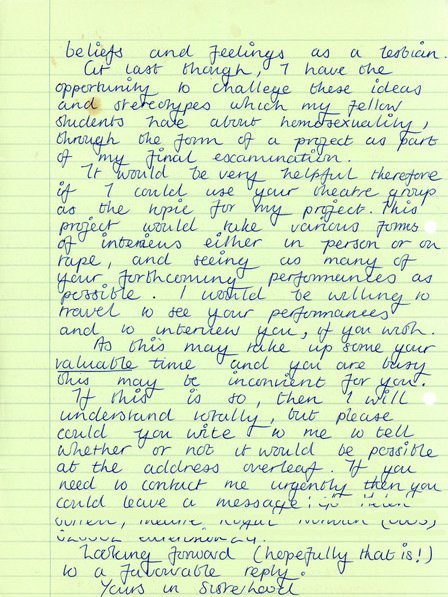 beliefs and feelings as a lesbian.
At last though, I have the
opportunity to challege these ideas
and stereotypes which my fellow
students have about homosexuality,
through the form of a project as part
of my final excamination.
It would be very helpful therefore
if I could use your theatre group
as the topic for my project. This
project would take various forms
of interviews either in person or on
tape, and seeing as many of
your forthcoming performances as
possible. I would be willing to
travel to see your performances
and to interview you, if you wish.
As this may take up some your
valuable time and you are busy
this may be inconvient for you.
If this is so, then I will
understand totally, but please
could you wite to me to tell
whether or not it would be possible
at the address overleaf. If you
need to contact me urgently then you
could leave a message
Looking forward (hopefully that is!)
to a favourable reply.
Yours in Sisterhood